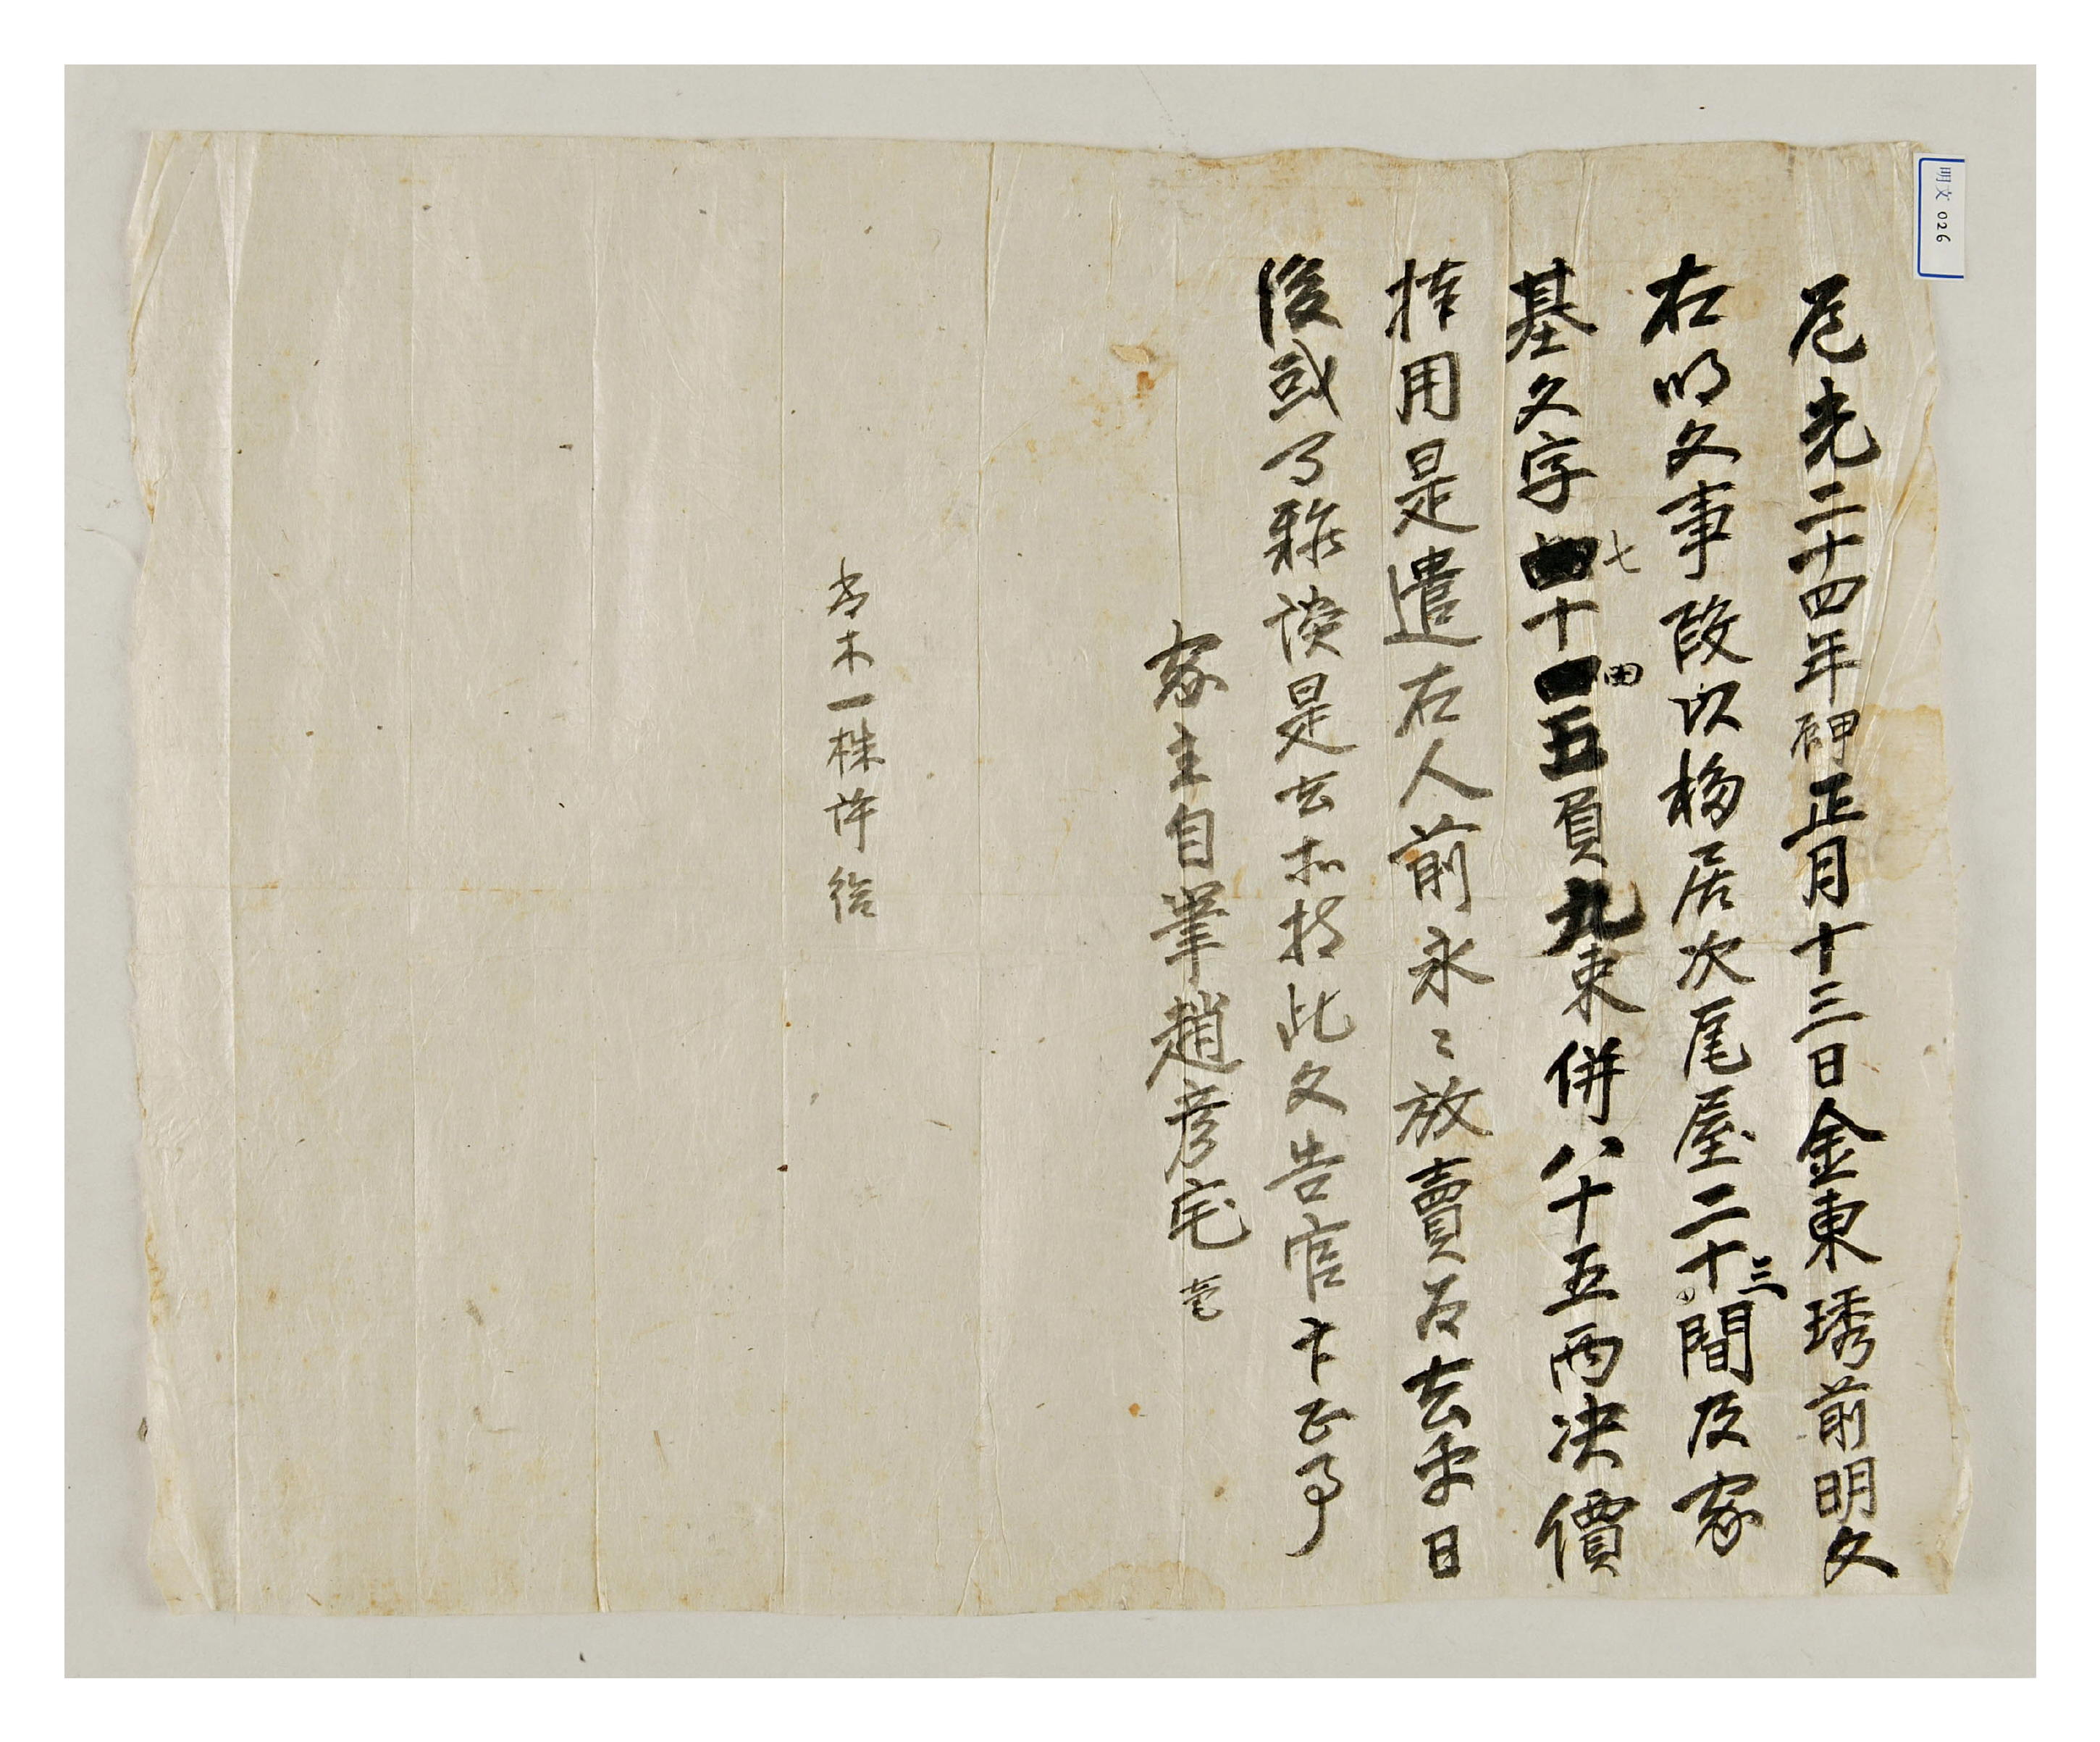 明文 026
道光二十四年甲辰正月十三日金東琇前明文
右明文事段以移居次尾屋二十三間及家
基文字七十田五負九束併八十五兩決價
捧用是遣右人前永〻放賣爲去乎日
後或有雜談是去扵此文告官卞正事
家主自筆趙彦宅
木一株許給